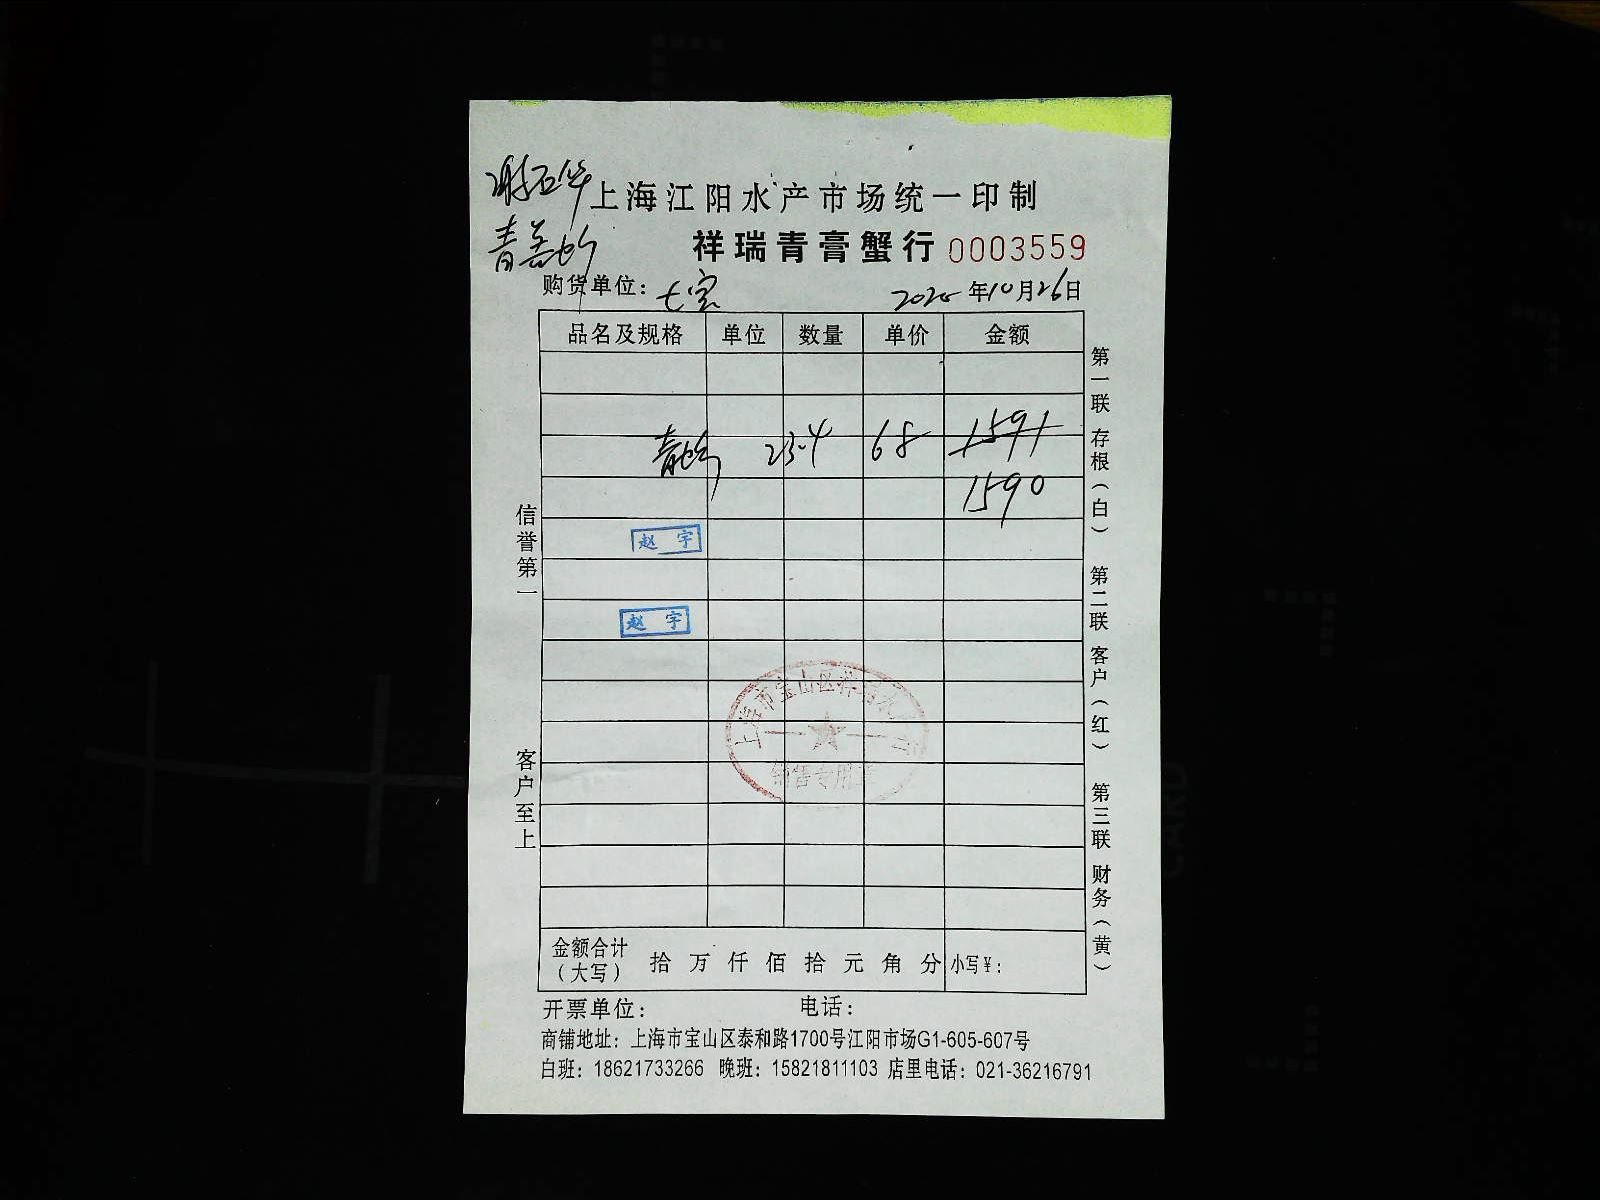 上海江阳水产市场统一印制
祥瑞青膏蟹行 0003559
购货单位: 七宝 年10月26日
品名及规格 单位 数量 单价 金额
23.4 68 1591
1590
赵宇
赵宇
上海市宝山区祥瑞水产行
销售专用章
信誉第一
客户至上
第一联 存根(白)
第二联 客户(红)
第三联 财务(黄)
金额合计(大写) 拾 万 仟 佰 拾 元 角 分 小写¥:
开票单位: 电话:
商铺地址: 上海市宝山区泰和路1700号江阳市场G1-605-607号
白班: 18621733266 晚班: 15821811103 店里电话: 021-36216791